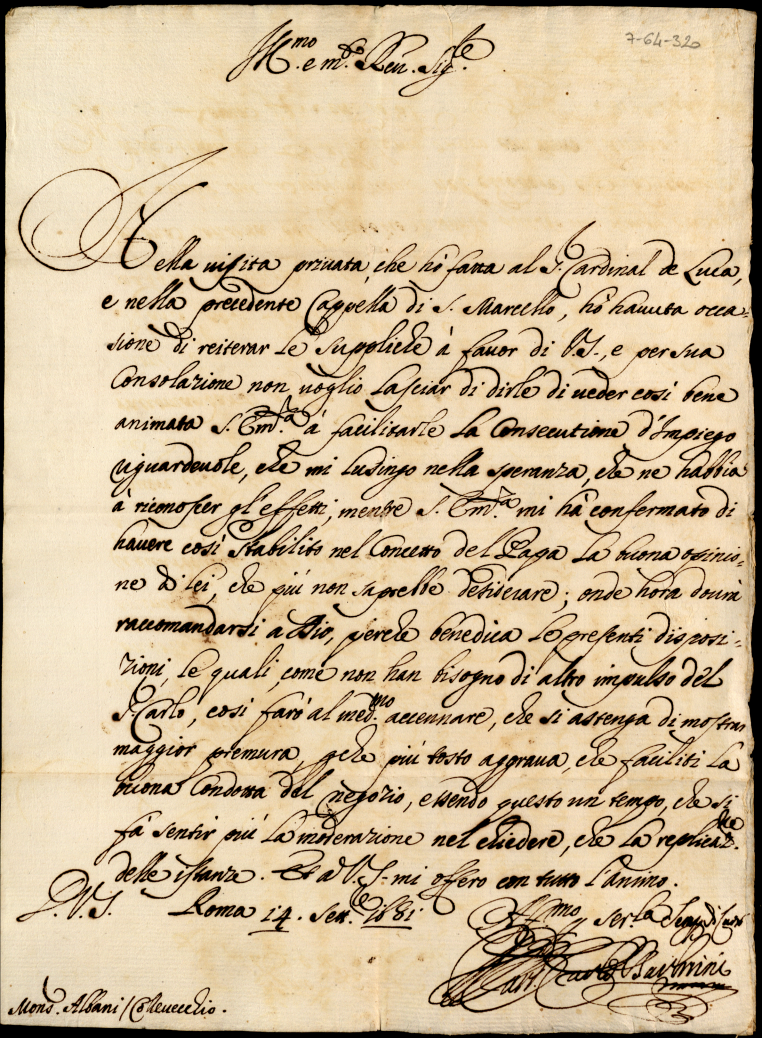 7-64-320
Ill.mo e m.to Reu. Sig.re
Nella uisita priuata, che hò fatta al S. Cardinal de Luca,
e nella precedente Cappella di S. Marcello, hò hauuta occa-
sione di reiterar le suppliche à fauor di V.S., e per sua
Consolazione non uoglio lasciar di dirle di ueder così bene
animata S. Em.za à facilitarle la Consecutione d'Impiego
riguardeuole, che mi lusingo nella speranza, che ne habbia
à riconoscer gl'effetti, mentre S. Em.za mi hà confermato di
hauere così stabilito nel Concetto del Papa la buona opinio-
ne di lei, che più non saprebbe desiderare; onde hora dourà
raccomandarsi a Dio, perche benedica le presenti disposi-
zioni, le quali, come non han bisogno di altro impulso del
S. Carlo, così farò al med.mo accennare, che si astenga di mostrar
maggior premura, che più tosto aggraua, che faciliti la
buona Condotta del negozio, essendo questo un tempo, che si
fà sentir più la moderazione nel chiedere, che la replica
delle istanze. Et à V.S. mi offero con tutto l'animo.
D.V.S. Roma 14. Sett.re 1681
Aff.mo per ser.la sempre
Il Card. Carlo Barberini
Mons. Albani / Colleuecchio.